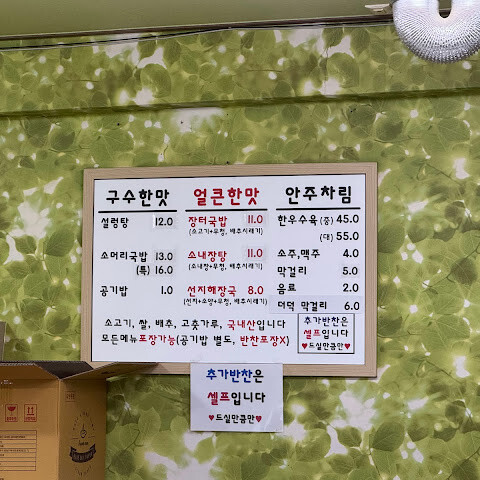 구수한맛
설렁탕 12.0
소머리국밥 13.0
(특) 16.0
공기밥 1.0
얼큰한맛
장터국밥 11.0
(소고기+무청, 배추시래기)
소내장탕 11.0
(소내장+무청, 배추시래기)
선지해장국 8.0
(선지+소양+무청, 배추시래기)
안주차림
한우수육 (중) 45.0
(대) 55.0
소주,맥주 4.0
막걸리 5.0
음료 2.0
더덕 막걸리 6.0
소고기, 쌀, 배추, 고춧가루, 국내산입니다
모든메뉴포장가능(공기밥 별도, 반찬포장X)
추가반찬은
셀프입니다
♥드실만큼만♥
추가반찬은
셀프입니다
♥드실만큼만♥